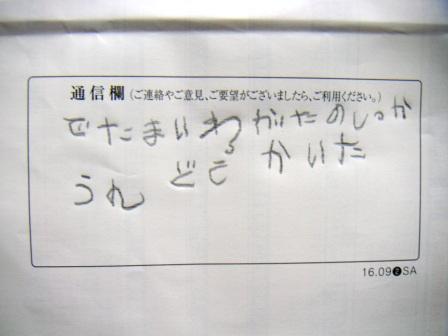 通信欄（ご連絡やご意見、ご要望がございましたら、ご利用ください。）
でたまいわがいたのしっか
る
うれ どど かいた
16.09❷SA